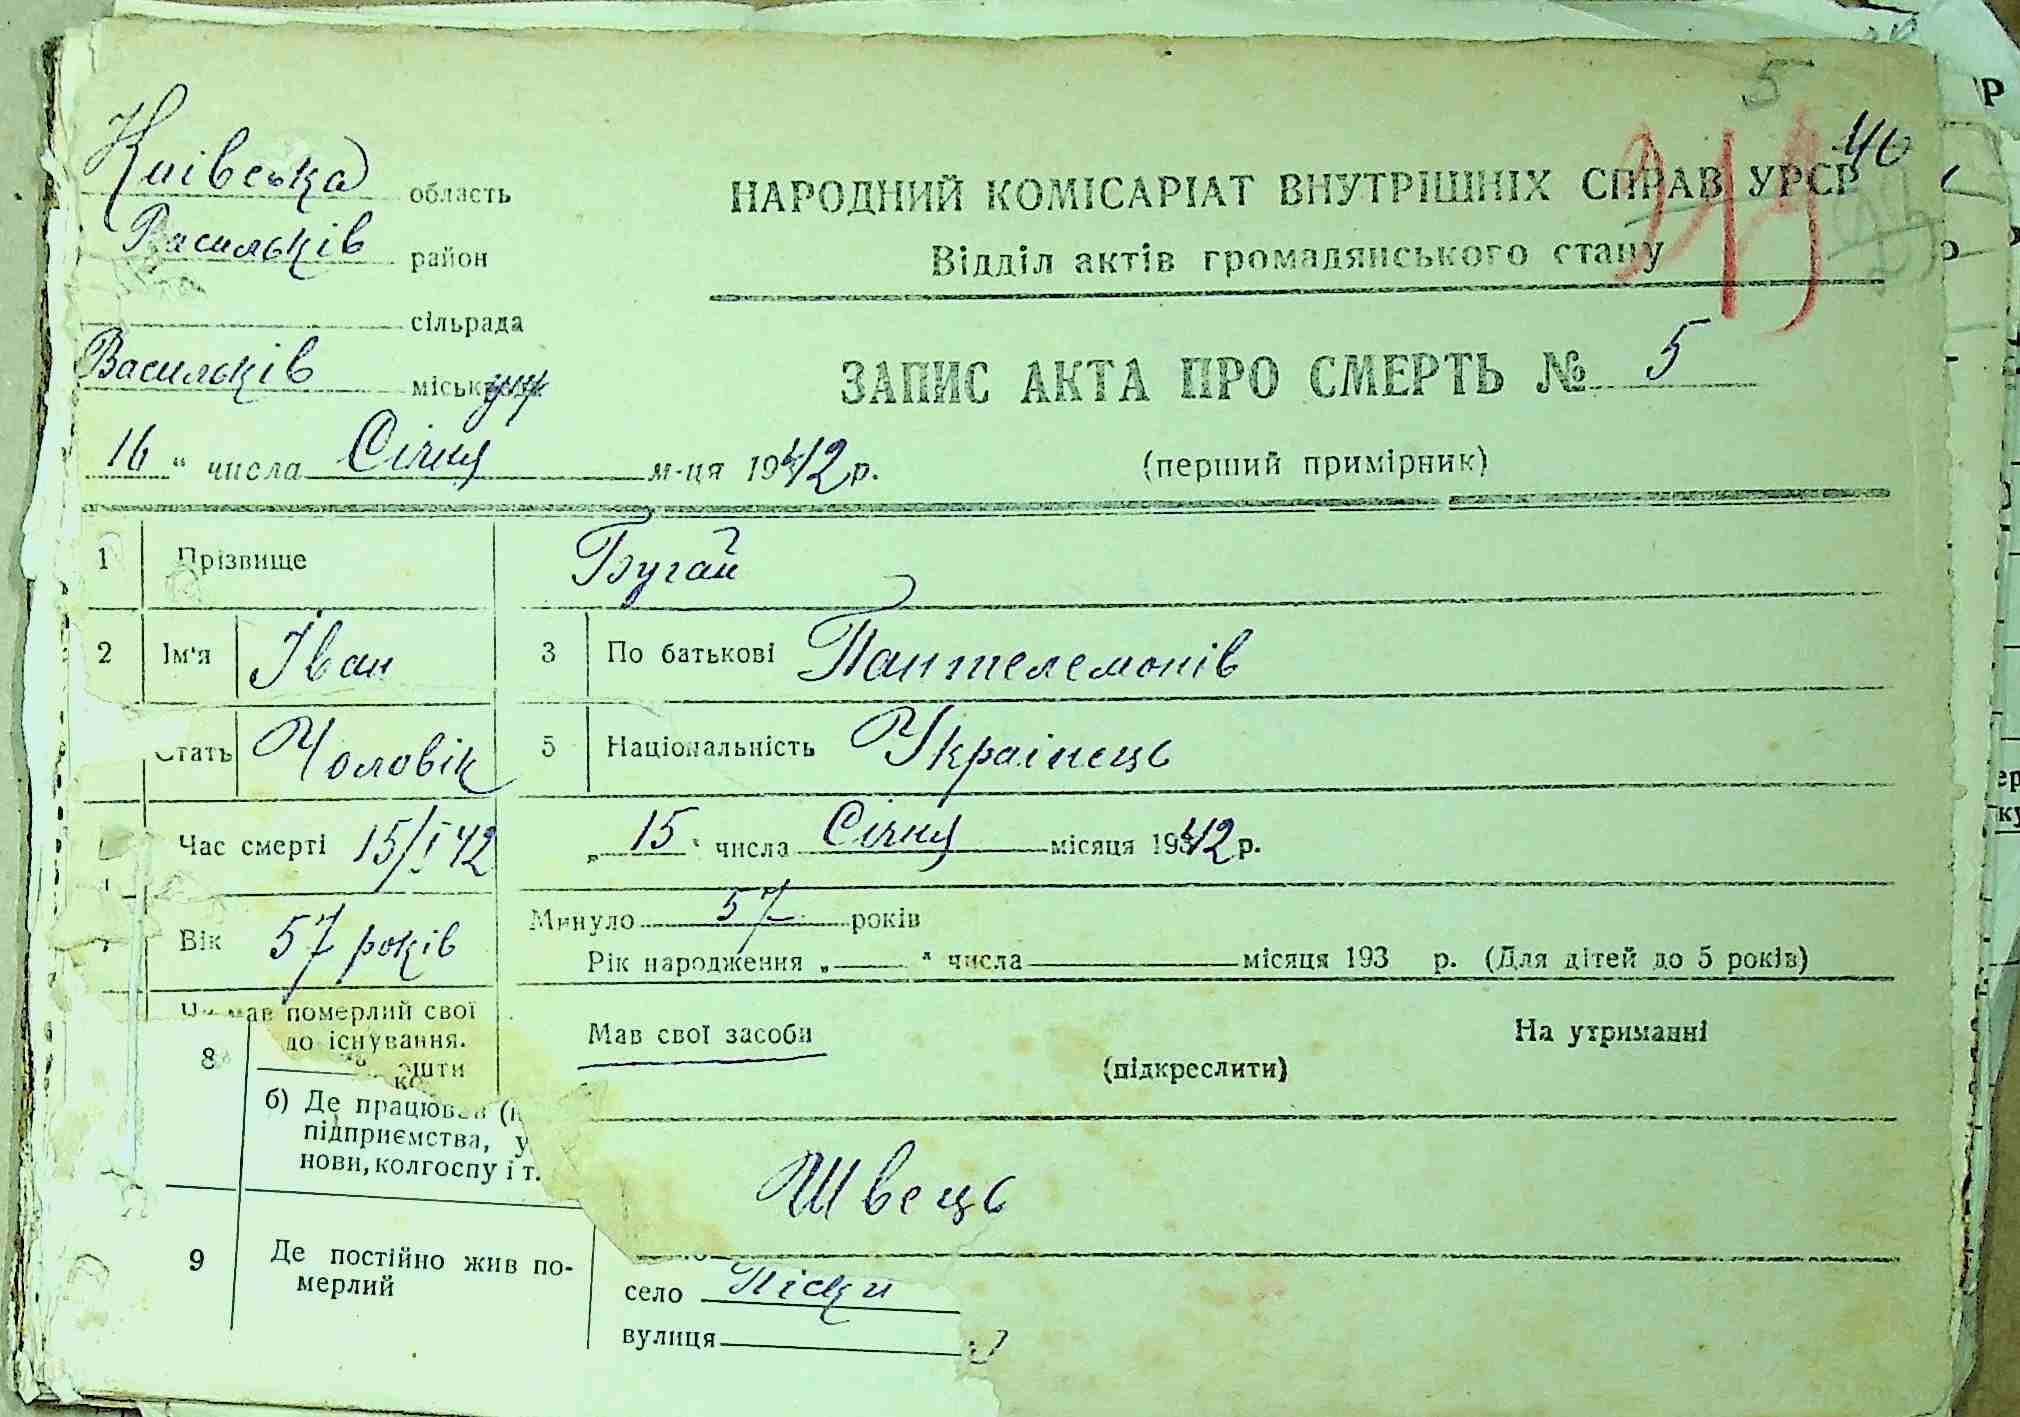 5
46
Київська область
НАРОДНИЙ КОМІСАРІАТ ВНУТРІШНІХ СПРАВ УРСР
Васильків район
Відділ актів громадянського стану
сільрада
Васильків міськ
ЗАПИС АКТА ПРО СМЕРТЬ № 5
16 " числа Січня м-ця 1942 р.
(перший примірник)
1 Прізвище Бугай
2 Ім'я Іван 3 По батькові Пантелемонів
Стать Чоловік 5 Національність Украінець
Час смерті 15/I 42 „ 15 " числа Січня місяця 1942 р.
Вік 57 років Минуло 57 років
Рік народження „ " числа місяця 193 р. (Для дітей до 5 років)
мав померлий свої
до існування.
Мав свої засоби На утриманні
(підкреслити)
8
б) Де працював (
підприємства, у
нови, колгоспу і т.
Швець
9 Де постійно жив по-
мерлий
село Піски
вулиця